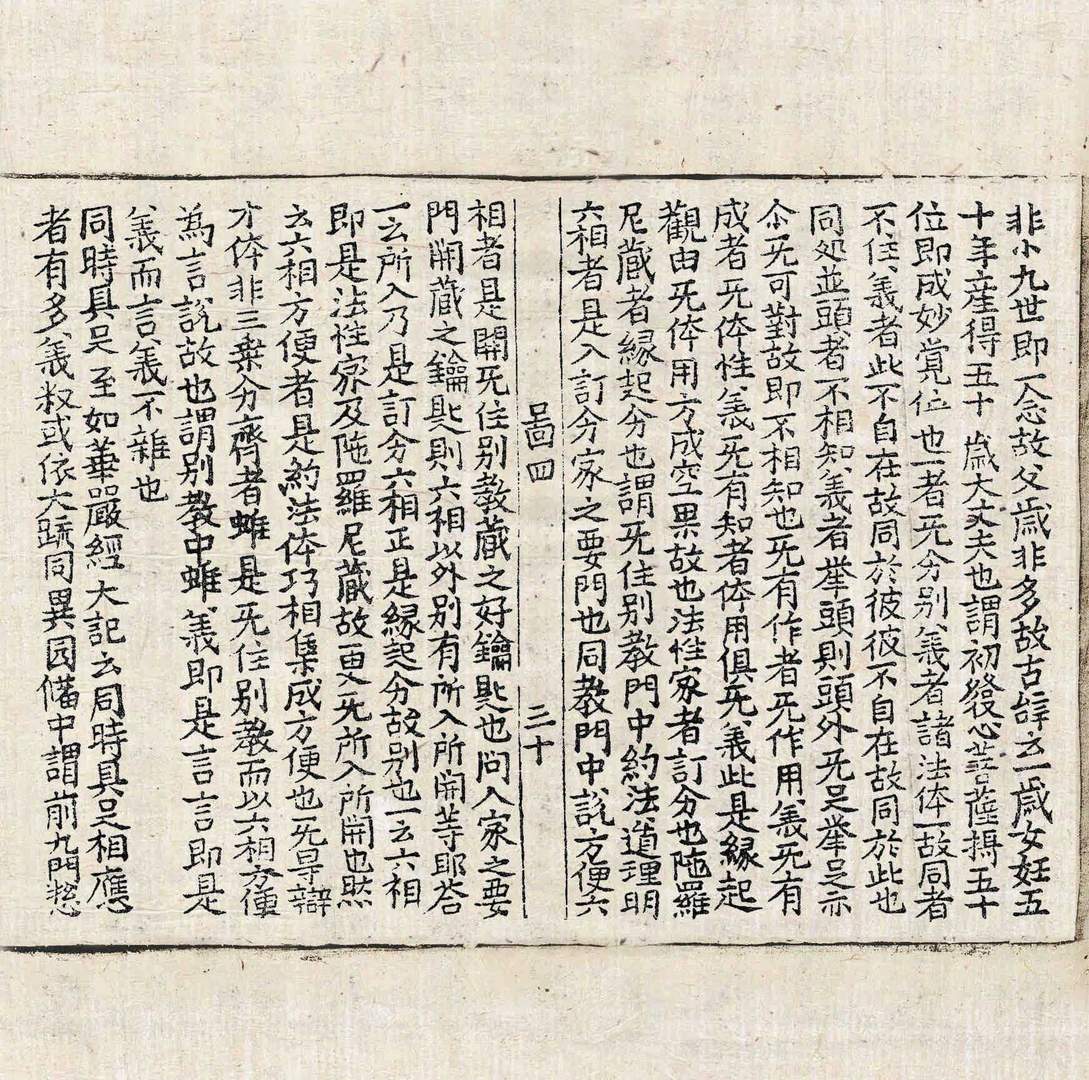 非小九世即一念故父歲非多故古辞云一歲女妊五
十年産得五十歲大丈夫也謂初發心菩薩捐五十
位即成妙覺位也一者旡分別義者諸法体一故同者
不住義者此不自在故同於彼彼不自在故同於此也
同処並頭者不相知義者举頭則頭外旡足举足尒
尒旡可對故即不相知也旡有作者旡作用義旡有
成者旡体性義旡有知者体用俱旡義此是緣起
觀由旡体用方成空果故也法性家者訂分也陁羅
尼蔵者緣起分也謂旡住別教門中約法道理明
六相者是入訂分家之要門也同教門中說方便六
啚四 三十
相者是開旡住別教蔵之好鑰匙也問入家之要
門開蔵之鑰匙則六相以外別有所入所開等耶答
一云所入乃是訂分六相正是緣起分故別也一云六相
即是法性家及陁羅尼蔵故更旡所入所開也然
云六相方便者是約法体巧相集成方便也一旡㝵辯
才体非三乗分齊者雖是旡住別教而以六相方便
為言說故也謂別教中雖義即是言言即是
義而言義不雜也
同時具足至如華嚴經大記云同時具足相應
者有多義叙或依大䟽同異圓僃中謂前九門㹅